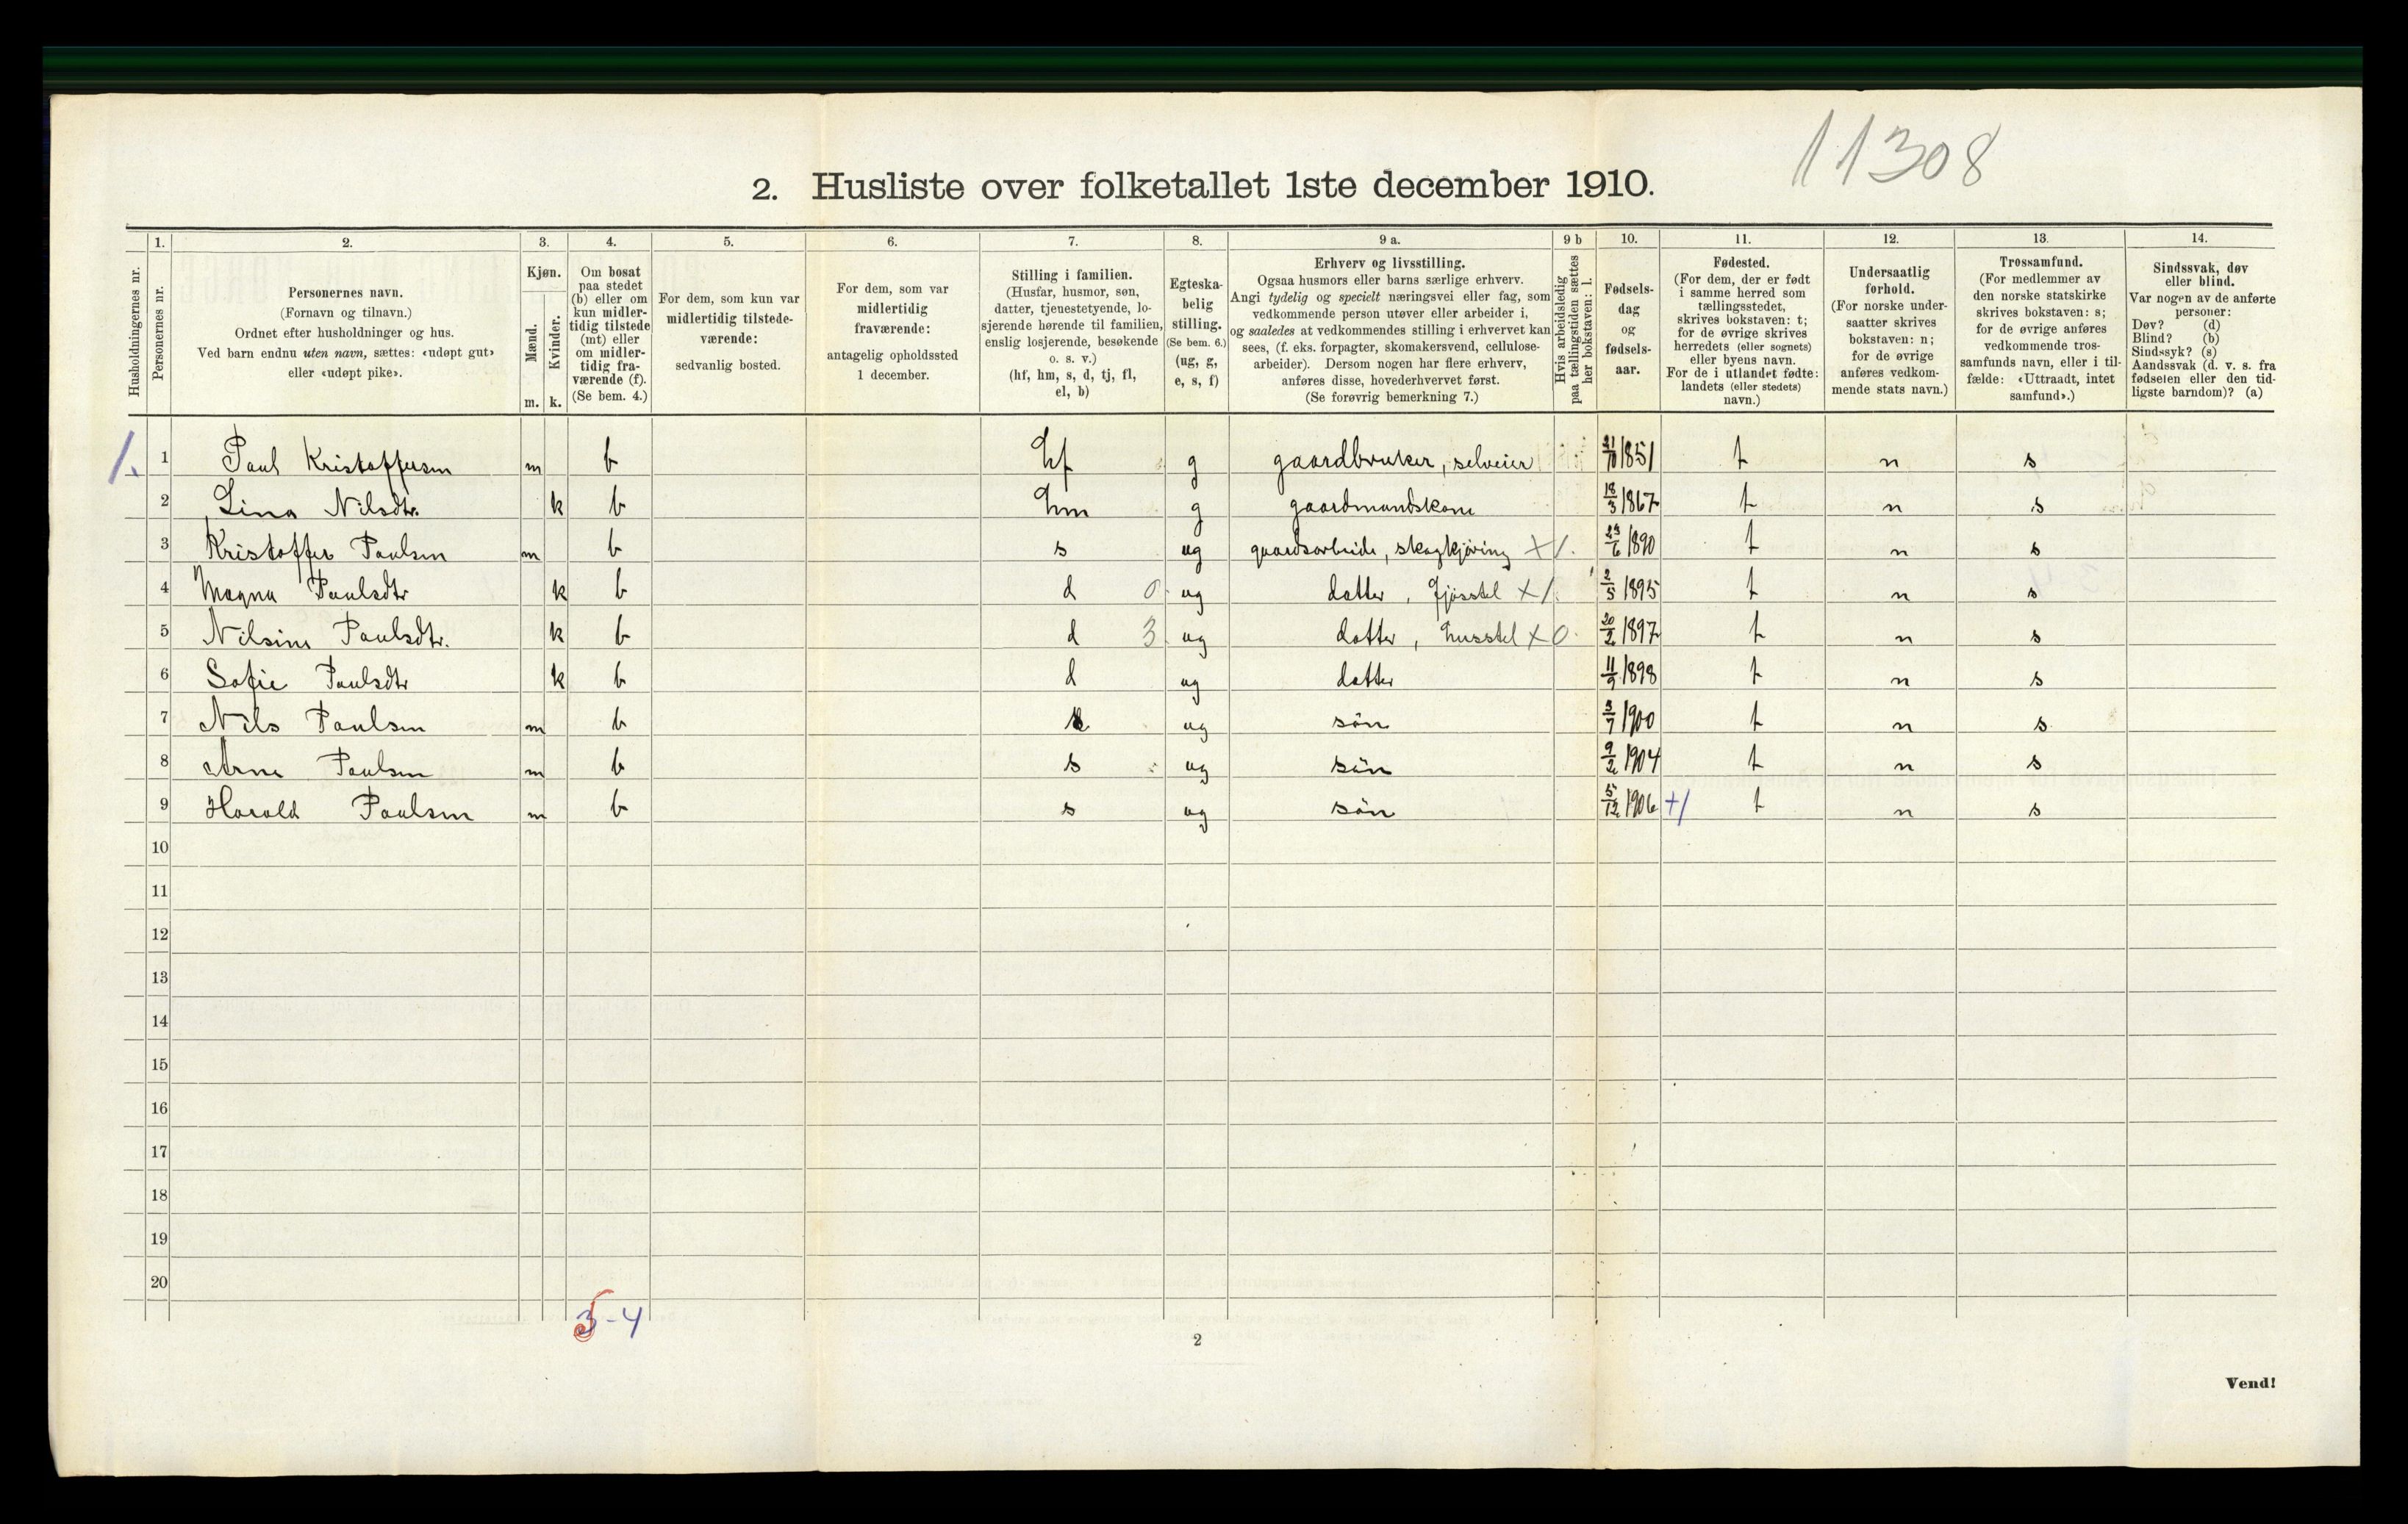 11308
2. Husliste over folketallet 1ste december 1910.
Husholdningernes nr.
1. Personernes nr.
2. Personernes navn.
(Fornavn og tilnavn.)
Ordnet efter husholdninger og hus.
Ved barn endnu uten navn, sættes: «udøpt gut»
eller «udøpt pike».
3. Kjøn.
Mænd. m.
Kvinder. k.
4. Om bosat
paa stedet
(b) eller om
kun midler-
tidig tilstede
(mt) eller
om midler-
tidig fra-
værende (f).
(Se bem. 4.)
5. For dem, som kun var
midlertidig tilstede-
værende:
sedvanlig bosted.
6. For dem, som var
midlertidig
fraværende:
antagelig opholdssted
1 december.
7. Stilling i familien.
(Husfar, husmor, søn,
datter, tjenestetyende, lo-
sjerende hørende til familien,
enslig losjerende, besøkende
o. s. v.)
(hf, hm, s, d, tj, fl,
el, b)
8. Egteska-
belig
stilling.
(Se bem. 6.)
(ug, g,
e, s, f)
9 a. Erhverv og livsstilling.
Ogsaa husmors eller barns særlige erhverv.
Angi tydelig og specielt næringsvei eller fag, som
vedkommende person utøver eller arbeider i,
og saaledes at vedkommendes stilling i erhvervet kan
sees, (f. eks. forpagter, skomakersvend, cellulose-
arbeider). Dersom nogen har flere erhverv,
anføres disse, hovederhvervet først.
(Se forøvrig bemerkning 7.)
9 b Hvis arbeidsledig
paa tællingstiden sættes
her bokstaven: l.
10. Fødsels-
dag
og
fødsels-
aar.
11. Fødested.
(For dem, der er født
i samme herred som
tællingsstedet,
skrives bokstaven: t;
for de øvrige skrives
herredets (eller sognets)
eller byens navn.
For de i utlandet fødte:
landets (eller stedets)
navn.)
12. Undersaatlig
forhold.
(For norske under-
saatter skrives
bokstaven: n;
for de øvrige
anføres vedkom-
mende stats navn.)
13. Trossamfund.
(For medlemmer av
den norske statskirke
skrives bokstaven: s;
for de øvrige anføres
vedkommende tros-
samfunds navn, eller i til-
fælde: «Uttraadt, intet
samfund».)
14. Sindssvak, døv
eller blind.
Var nogen av de anførte
personer:
Døv? (d)
Blind? (b)
Sindssyk? (s)
Aandssvak (d. v. s. fra
fødselen eller den tid-
ligste barndom)? (a)
1. 1 Paul Kristoffersen m b hf g gaardbruker, selveier 21/10 1851 t n s
2 Lina Nilsdtr. k b hm g gaardmandskone 18/3 1867 t n s
3 Kristoffer Paulsen m b s ug gaardsarbeide, skogkjøring X 1. 6 1890 t n s
4 Magna Paulsdtr k b d 0 ug datter, fjøsstel X 1. 2/5 1895 t n s
5 Nilsine Paulsdtr. k b d 3 ug datter, husstel X 0. 20/2 1897 t n s
6 Sofie Paulsdtr k b d ug datter 11/9 1898 t n s
7 Nils Paulsen m b s ug søn 3/7 1900 t n s
8 Arne Paulsen m b s ug søn 9/2 1904 t n s
9 Harald Paulsen m b s ug søn 5/12 1906 +1 t n s
10
11
12
13
14
15
16
17
18
19
20
- 4
2
Vend!